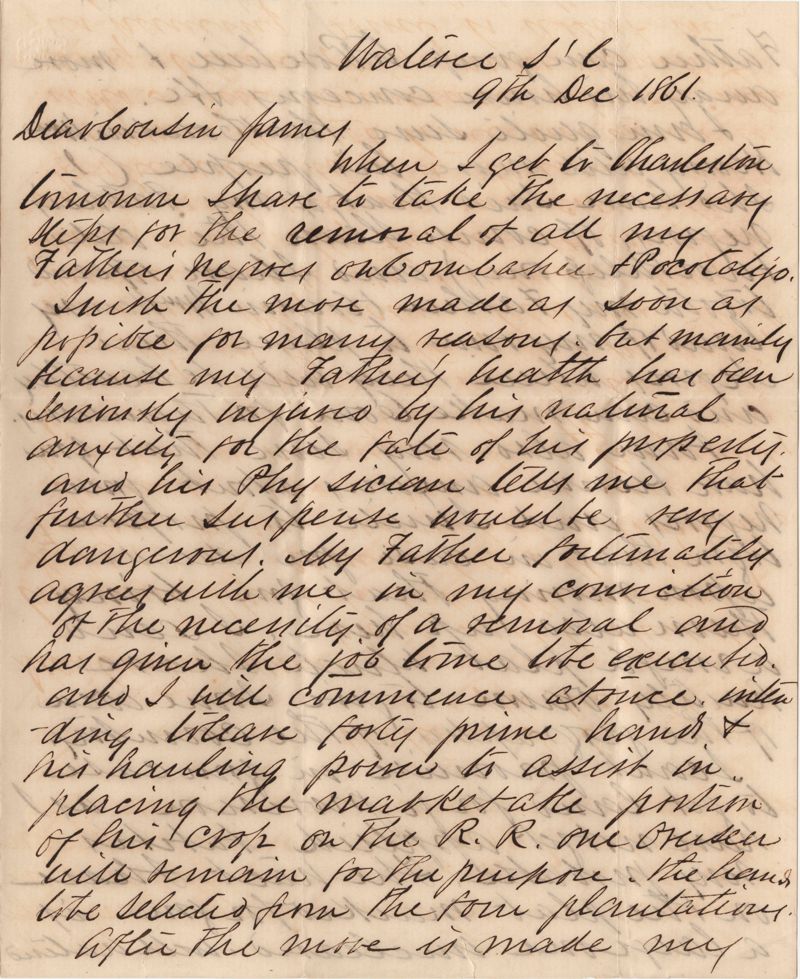 S'C
9th Dec 1861.
Dear Cousin James
When I get to Charleston
tomorrow I have to take the necessary
steps for the removal of all my
Father's negroes on Combahee & Pocotaligo.
I wish the move made as soon as
possible for many reasons. but mainly
because my Father's health has been
seriously injured by his natural
anxiety for the fate of his property.
and his Physician tells me that
further suspense would be very
dangerous. My Father fortunately
agrees with me in my conviction
of the necessity of a removal and
has given the job to me to be executed.
and I will commence at once. inten
-ding to leave forty prime hands &
his hauling power to assist in
placing the marketable portion
of his crop on the R. R. one Overseer
will remain for the purpose. the hands
to be selected from the four plantations.
After the move is made my